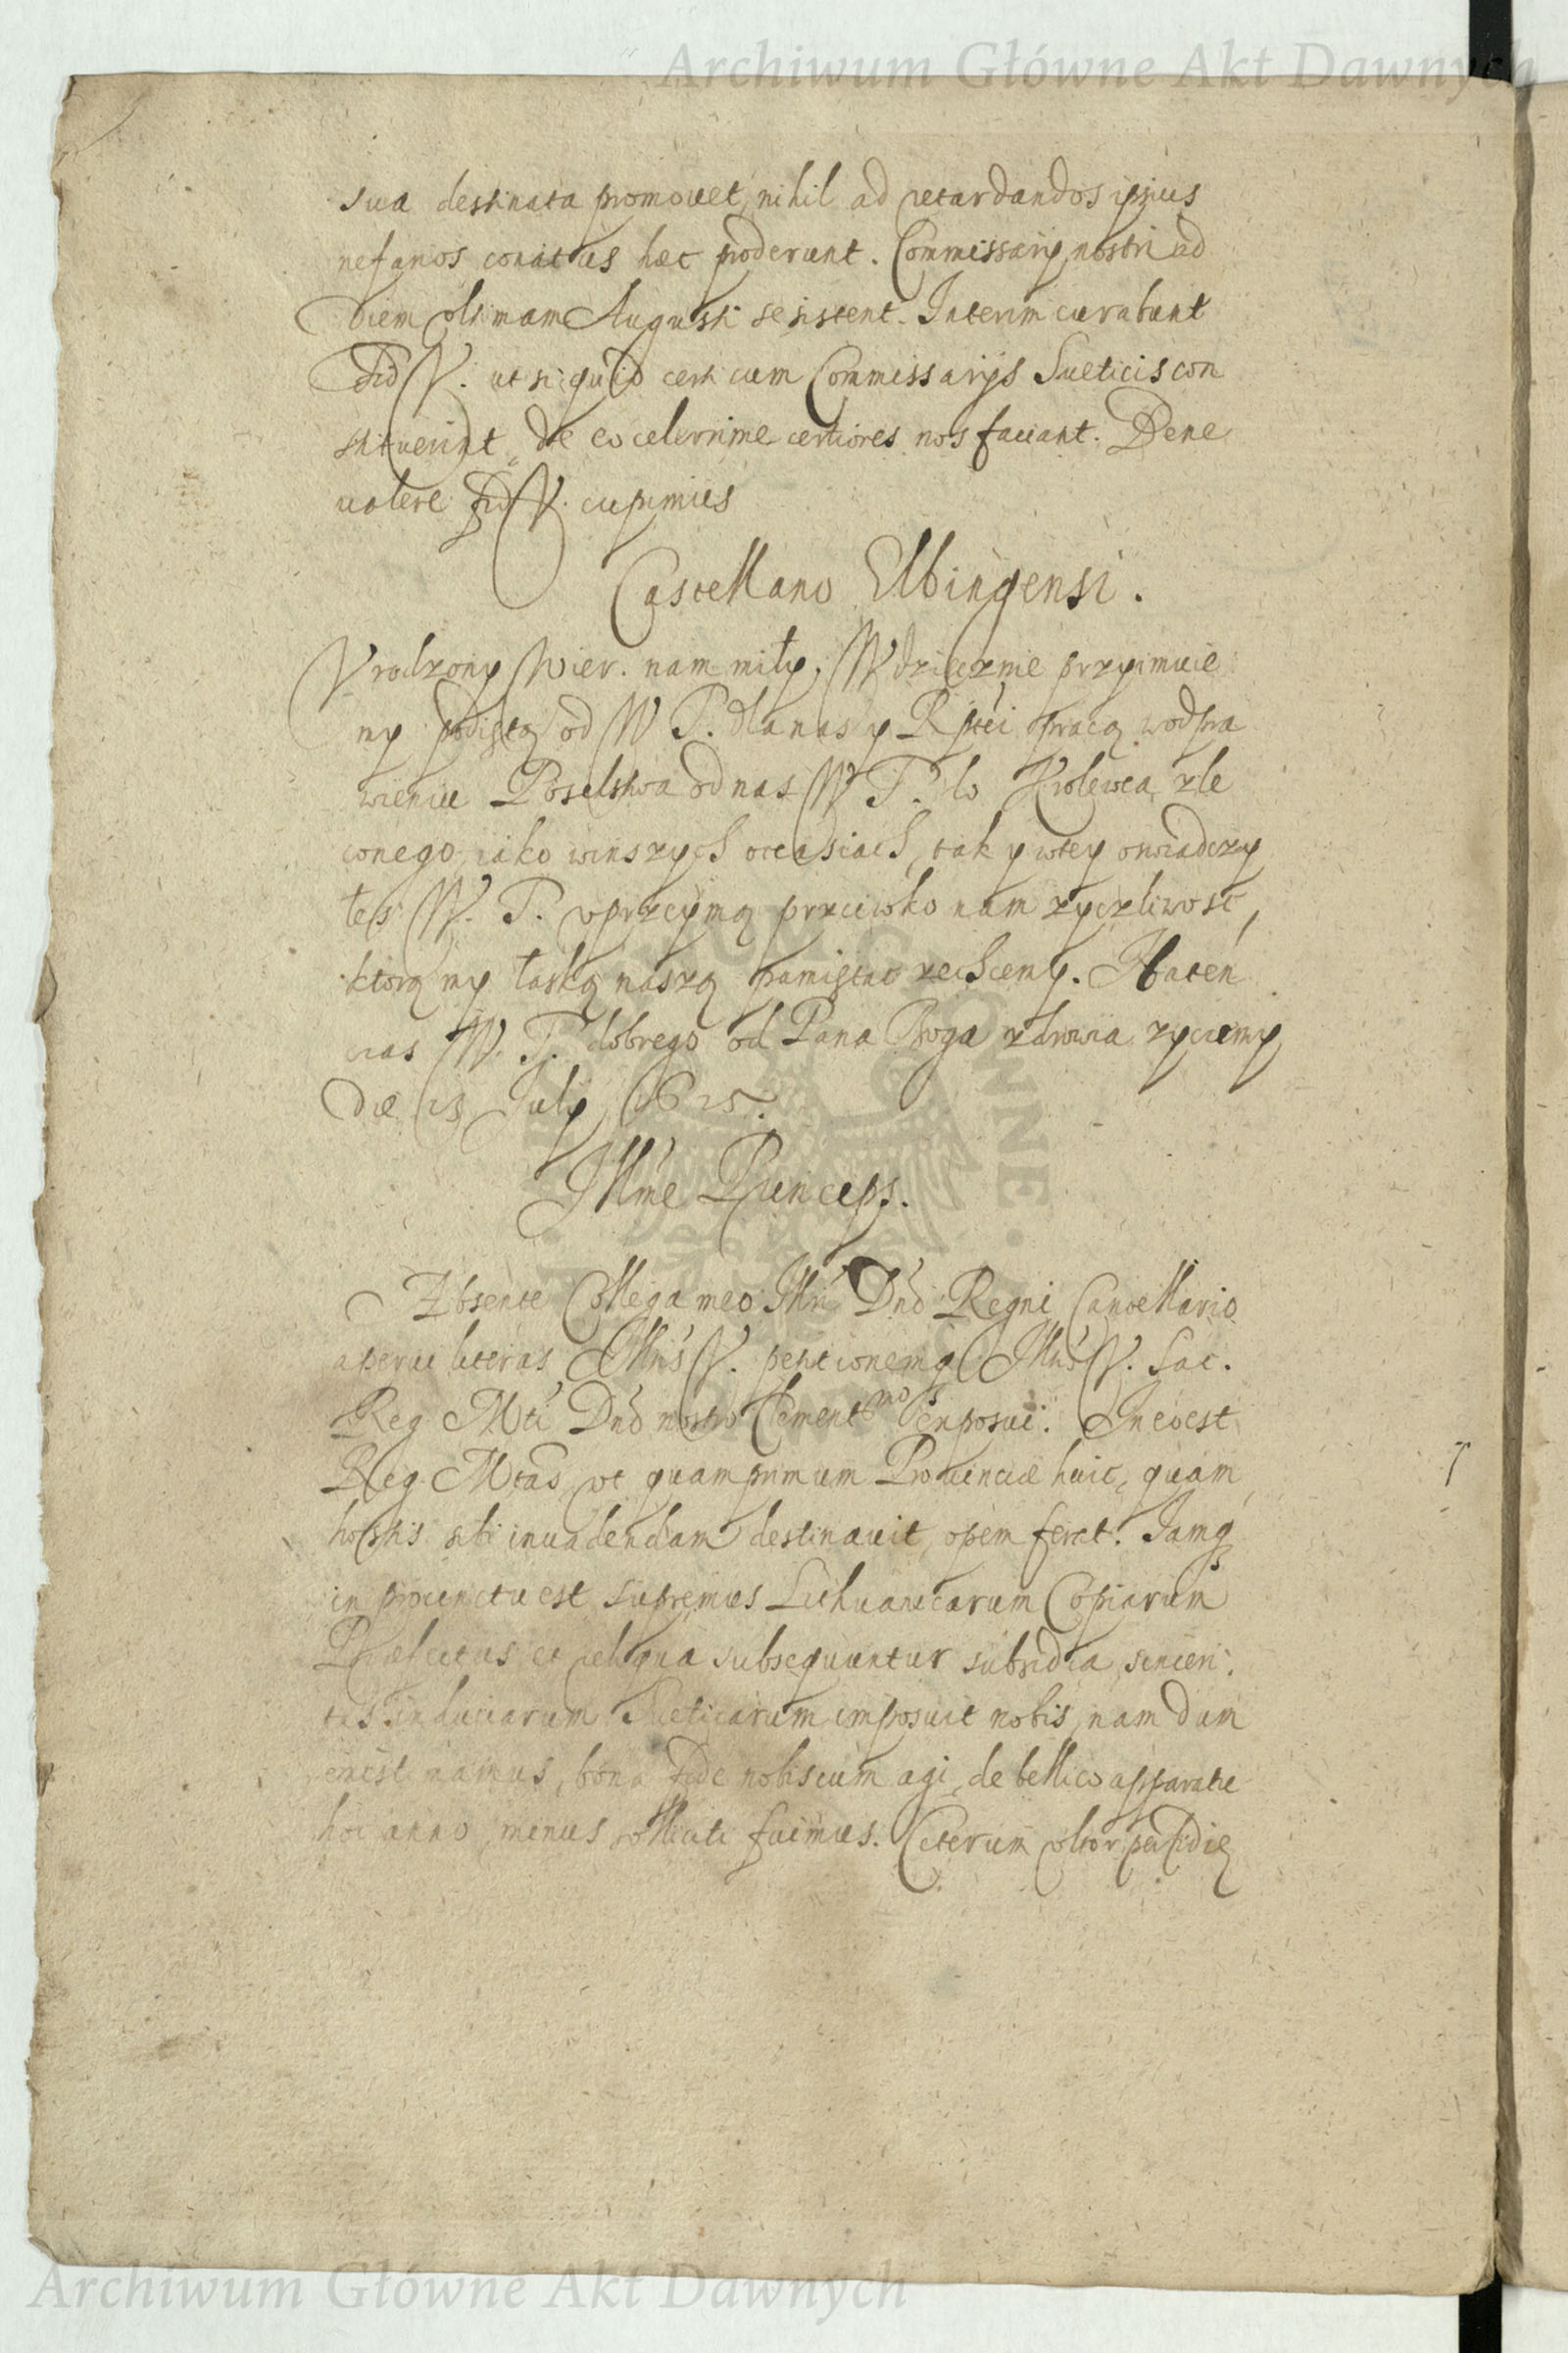 Archiwum Główne Akt Dawnych
sua destinata promouet, nihil ad retardandos ipsius
nefarios conatus haec proderunt. Commissarij nostri ad
diem vltimam Augusti se sistent. Interim curabunt
Fid V. ut si quid certi cum Commissarijs Sueticis con
stituerint, de eo celerrime certiores nos faciant. Bene
valere Fid V. cupimus
Castellano Elbingensi.
Vrodzony Wier. nam miły. Wdziecznie przyimuie
my podiętą od W T. dla nas y Rptei pracą w odpra
wieniu Poselstwa od nas W T. do Krolewca zle
conego, iako w inszych occasiach, tak y w tey oswiadczy
łes W. T. vprzeymą przeciwko nam zyczliwosc,
ktorą my łaską naszą pamiętac zechcemy. Naten
czas W. T. dobrego od Pana Boga zdrowia zyczemy
Die 23 July 1625.
Illme Princeps.
Absente Collega meo Illri Dnō Regni Cancellario
aperui literas Illris V. petitionemq Illris V. Sac.
Reg Mti Dnō nostro Clementmo exposui. In eo est
Reg Mtas, vt quamprimum Prouinciae huic, quam
hostis sibi inuadendam destinauit, opem ferat. Jamq
in procinctu est supremus Lithuanicarum Copiarum
Praefectus et reliqua subsequuntur subsidia, sinceri
tas induciarum Sueticarum imposuit nobis, nam dum
existimamus, bona fide nobiscum agi, de bellico apparatu
hoc anno minus solliciti fuimus. Ceterum vltor perfidię
Archiwum Główne Akt Dawnych